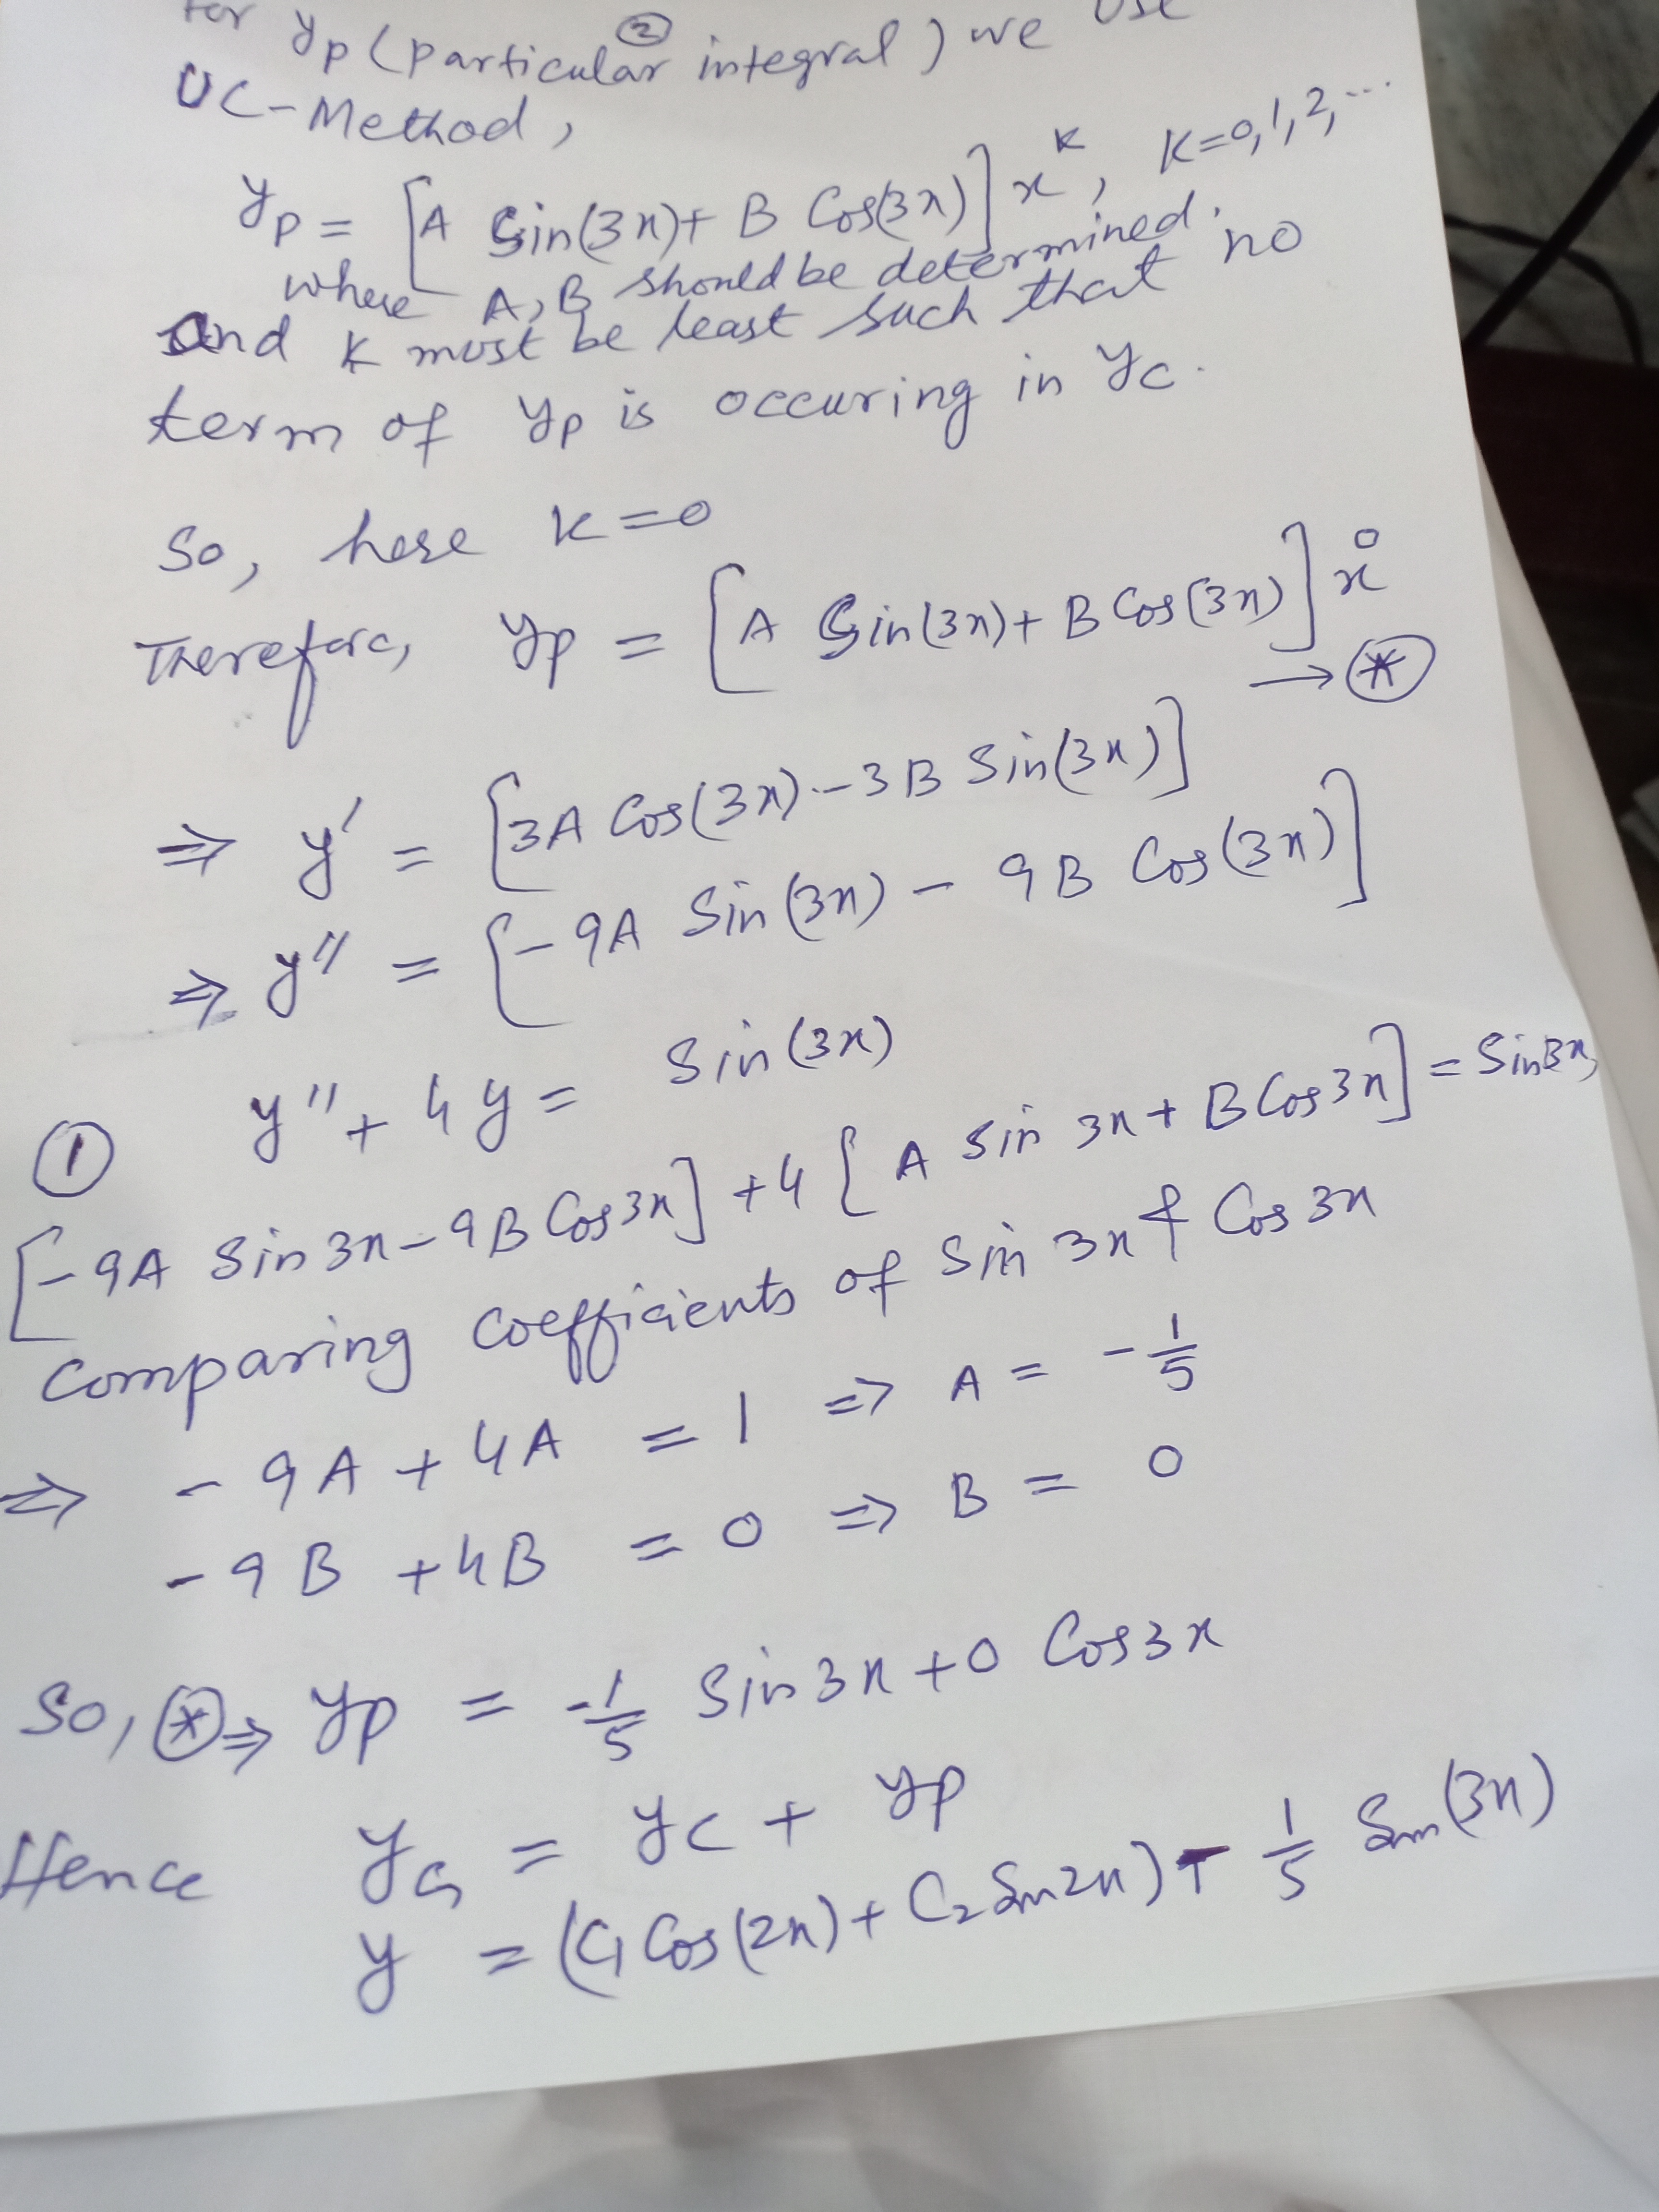 for yp (particular integral) we use
②
UC-Method,
yp = [A Sin(3x)+ B Cos(3x)] x^k, K=0,1,2,...
where A, B should be determined.
and k must be least such that no
term of yp is occuring in yc.
So, here k=0
Therefore, yp = [A Sin(3x)+ B Cos(3x)] x^0
→ (*)
⇒ y' = [3A Cos(3x) - 3B Sin(3x)]
⇒ y'' = [-9A Sin(3x) - 9B Cos(3x)]
① y'' + 4y = Sin(3x)
[-9A Sin3x - 9B Cos3x] +4 [A Sin 3x + B Cos3x] = Sin3x,
Comparing coefficients of Sin 3x & Cos 3x
⇒ -9A + 4A = 1 => A = -1/5
-9B +4B = 0 => B = 0
So, (*) ⇒ yp = -1/5 Sin3x + 0 Cos3x
Hence yG = yc + yp
y = (C1 Cos(2x) + C2 Sin2x) - 1/5 Sin(3x)